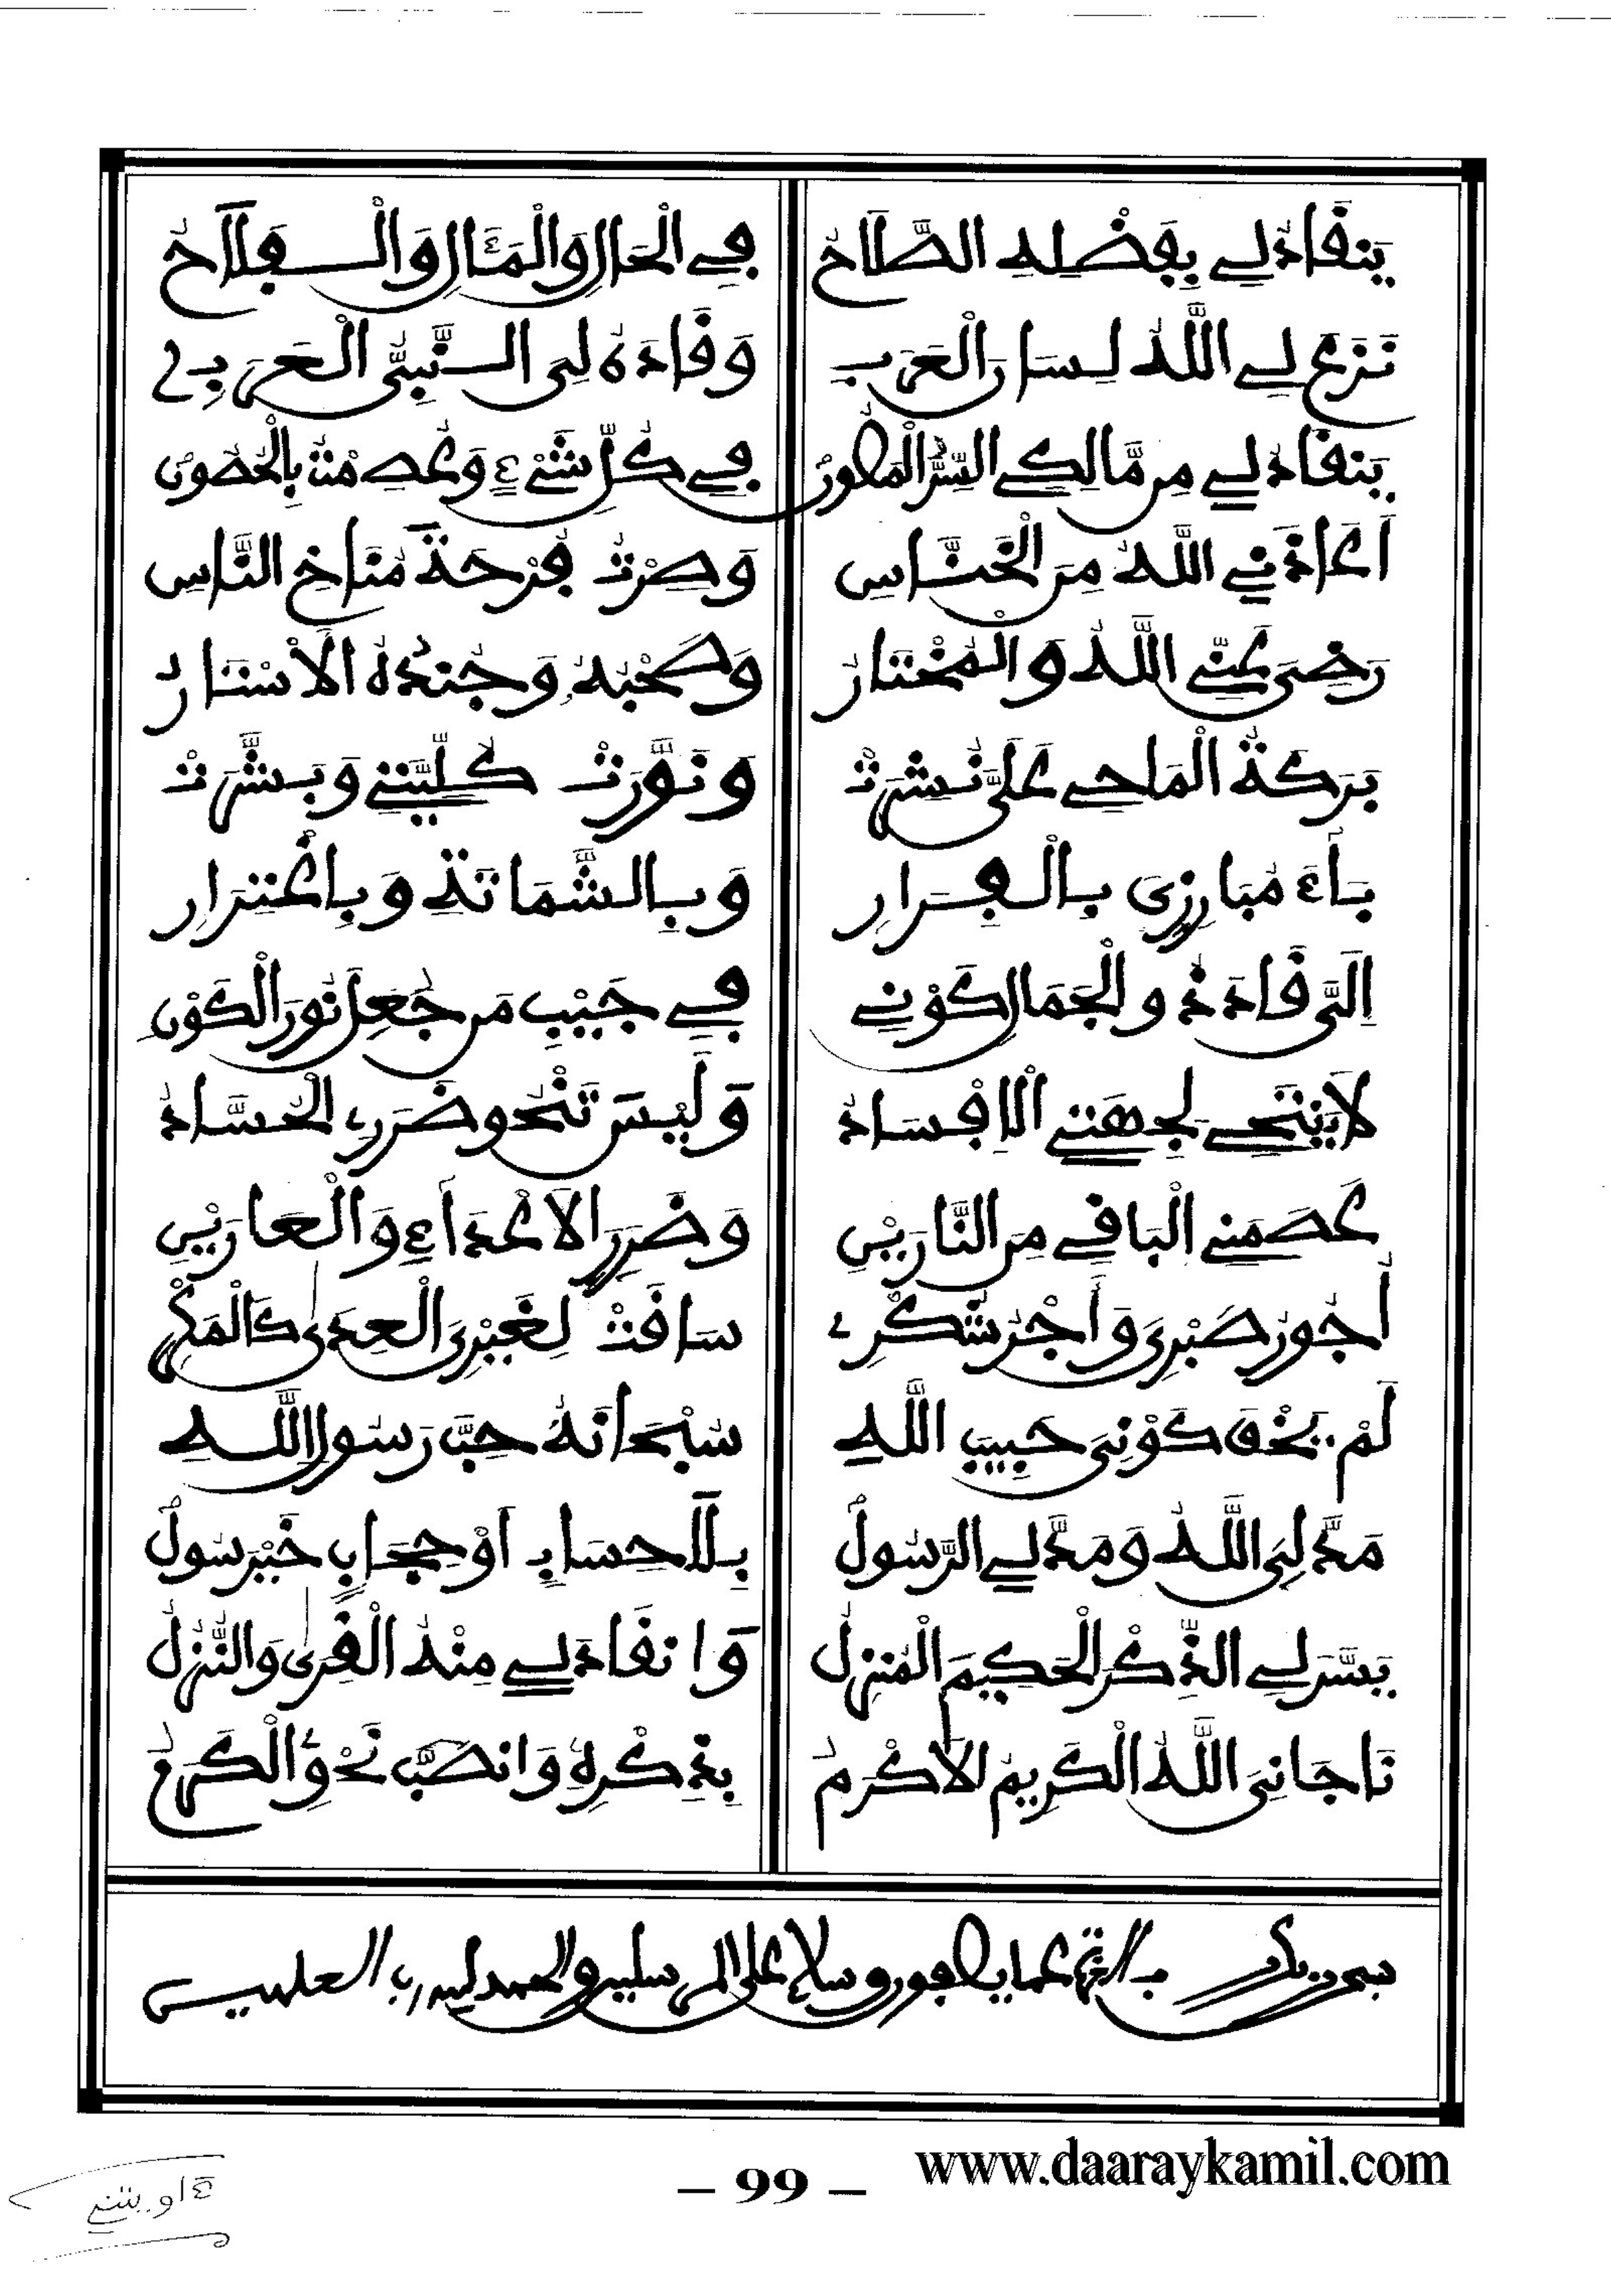 يَنْقَادُ لِي بِفَضْلِهِ الصَّلَاحُ فِي الْحَالِ وَالْمَآلِ وَالْفَلَاحُ
نَزَعَ لِي اللَّهُ لِسَانَ الْعَرَبِ وَقَادَهُ لِيَ النَّبِيُّ الْعَرَبِي
يَنْقَادُ لِي مِن مَّالِكِي السِّرُّ الْمَصُونْ فِي كُلِّ شَيْءٍ وَعُصِمْتُ بِالْحُصُونْ
أَعَاذَنِي اللَّهُ مِنَ الْخَنَّاسِ وَصِرْتُ فَرْحَةَ مُنَاخِ النَّاسِ
رَضِيَ عَنِّي اللَّهُ وَالْمُخْتَارُ وَصَحْبُهُ وَجُنْدُهُ الْأَسْتَارُ
بَرَكَةُ الْمَاحِي عَلَيَّ نُشِرَتْ وَنَوَّرَتْ كُلِّيَّتِي وَبَشَّرَتْ
بَاءَ مُبَارِزِي بِالْفِرَارِ وَبِالشَّمَاتَةِ وَبِاغْتِرَارِ
إِلَيَّ قَادَ ذُو الْجَمَالِ كَوْنِي فِي جَيْبِ مَن جُعِلَ نُورَ الْكَوْنِ
لَا يَنْتَحِي لِجِهَتِي الْإِفْسَادُ وَلَيْسَ تَنْحُو ضَرَرِي الْحُسَّادُ
عَصَمَنِي الْبَاقِي مِنَ النَّارَيْنِ وَضَرَرِ الْأَعْدَاءِ وَالْعَارَيْنِ
أُجُورُ صَبْرِي وَأَجْرُ شُكْرِي سَاقَتْ لِغَيْرِيَ الْعِدَى كَالْمَكْرِ
لَمْ يَخْفَ كَوْنِي حَبِيبَ اللَّهِ سُبْحَانَهُ حِبَّ رَسُولِ اللَّهِ
مَدَّ لِيَ اللَّهُ وَمَدَّ لِي الرَّسُولْ بِلَا حِسَابٍ أَوْ حِجَابٍ خَيْرَ سُولْ
يَسَّرَ لِي الذِّكْرَ الْحَكِيمَ الْمُنْزِلُ وَانْقَادَ لِي مِنْهُ الْقِرَى وَالنُّزُلُ
نَاجَانِيَ اللَّهُ الْكَرِيمُ الْأَكْرَمُ بِذِكْرِهِ وَانْصَبَّ نَحْوِي الْكَرَمُ
سبحن ربك رب العزة عما يصفون وسلام على المرسلين والحمد لله رب العلمين
www.daaraykamil.com
– 99 –